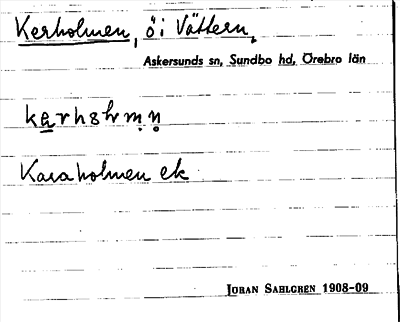 Kerholmen, ö i Vättern,
Askersunds sn, Sundbo hd, Örebro län
Karaholmen ek
JOHAN SAHLGREN 1908-09